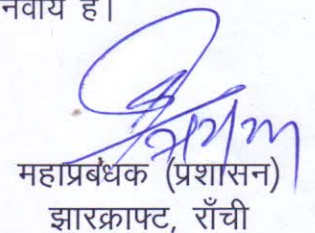 नवार्य है।
महाप्रबंधक (प्रशासन)
झारक्राफ्ट, राँची